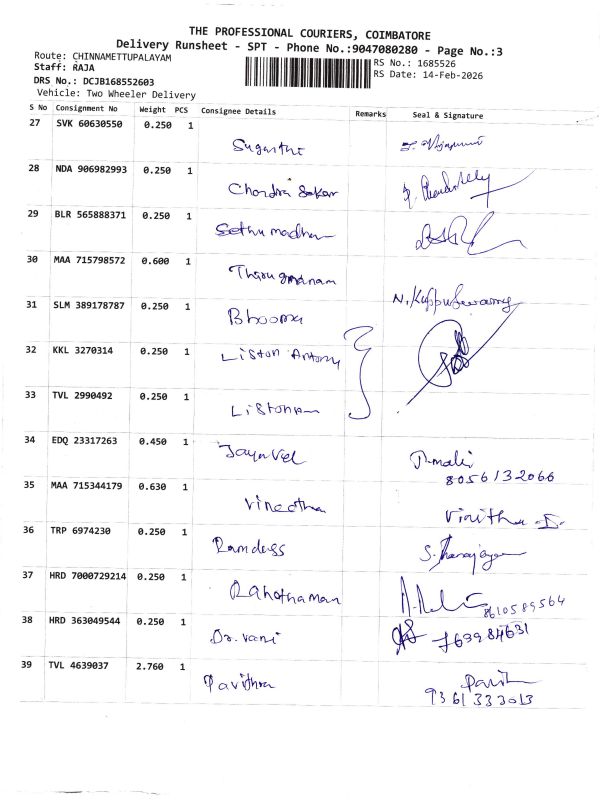 THE PROFESSIONAL COURIERS, COIMBATORE
Delivery Runsheet - SPT - Phone No.:9047080280 - Page No.:3
Route: CHINNAMETTUPALAYAM
Staff: RAJA
DRS No.: DCJB168552603
Vehicle: Two Wheeler Delivery
RS No.: 1685526
RS Date: 14-Feb-2026
S No Consignment No Weight PCS Consignee Details Remarks Seal & Signature
27 SVK 60630550 0.250 1 Suganthi
28 NDA 906982993 0.250 1 Chandra Sekar
29 BLR 565888371 0.250 1 Sethu madhan
30 MAA 715798572 0.600 1 Thirugnanam N. Kuppuswamy
31 SLM 389178787 0.250 1 Bhooma
32 KKL 3270314 0.250 1 Liston Antony
33 TVL 2990492 0.250 1
34 EDQ 23317263 0.450 1 Jayavel P. malli
8056132066
35 MAA 715344179 0.630 1 Vineetha Vinitha D.
36 TRP 6974230 0.250 1 Ramdass
37 HRD 7000729214 0.250 1 Rahothaman 8610589564
38 HRD 363049544 0.250 1 Dr. vani
39 TVL 4639037 2.760 1 Pavithra
9361333013